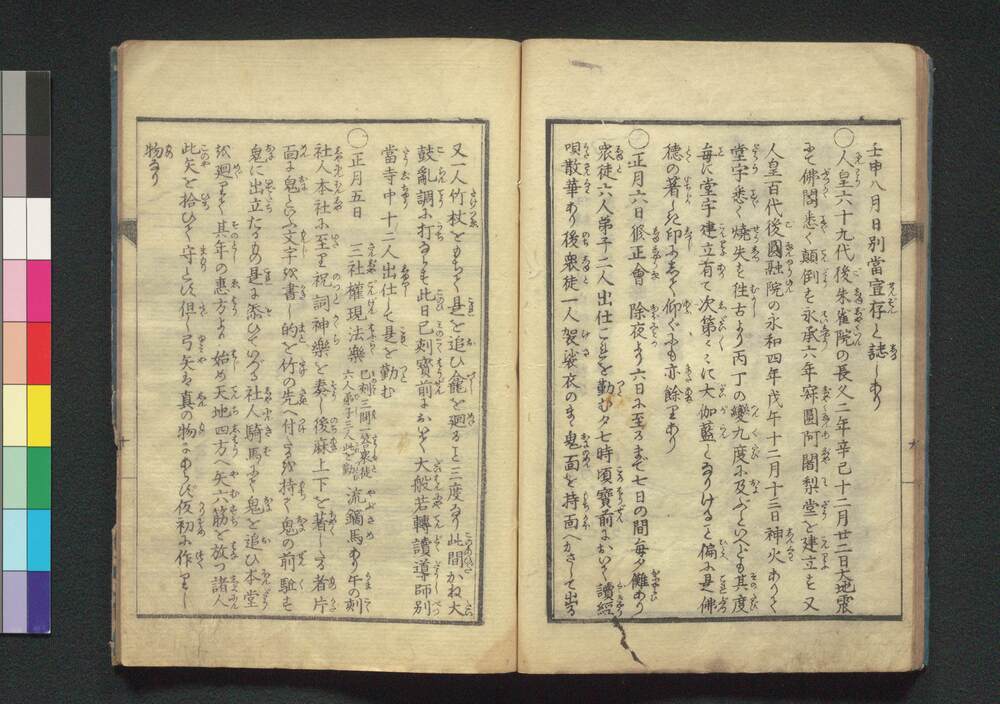 壬申八月日別當宣存と誌しあり
〇人皇六十九代後朱雀院の長久二年辛巳十二月廿二日大地震
にて佛閣悉く顛倒を永承六年寂圓阿闍梨堂を建立を又
人皇百代後圓融院の永和四年戊午十二月十三日神火ありて
堂宇悉く焼失を往古より丙丁の變九度に及ぶといへども其度
毎に堂宇建立有て次第々々に大伽藍となりけること偏に是佛
德の著しき印にして仰ぐにも亦餘りあり
〇正月六日修正會 除夜より六日に至るまで七日の間毎夕儺あり
衆徒六人弟子二人出仕これを勤む夕七時頃寶前において讀經
唄散華あり後衆徒一人袈裟衣のまゝ鬼面を持面へかさして出る
又一人竹杖をもちて是を追ひ龕を廻ること三度なり此間かね大
鼓亂調に打ならす此日巳刻寶前において大般若轉讀導師別
當寺中十二人出仕して是を勤む
〇正月五日 三社權現法樂 巳刻三間一答衆徒六人弟子三人此を勤む 流鏑馬あり午の刻
社人本社に至り祝詞神樂を奏し後麻上下を著したる者片
面に鬼といふ文字を書し的を竹の先へ付たるを持て鬼の前駈を
鬼に出立たるもの是に添ひていづる社人騎馬にて鬼を追ひ本堂
を廻りて其年の惠方より始め天地四方へ矢六筋を放つ諸人
此矢を拾ひて守とす但し弓矢は真の物にあらず仮初に作りし
物なり